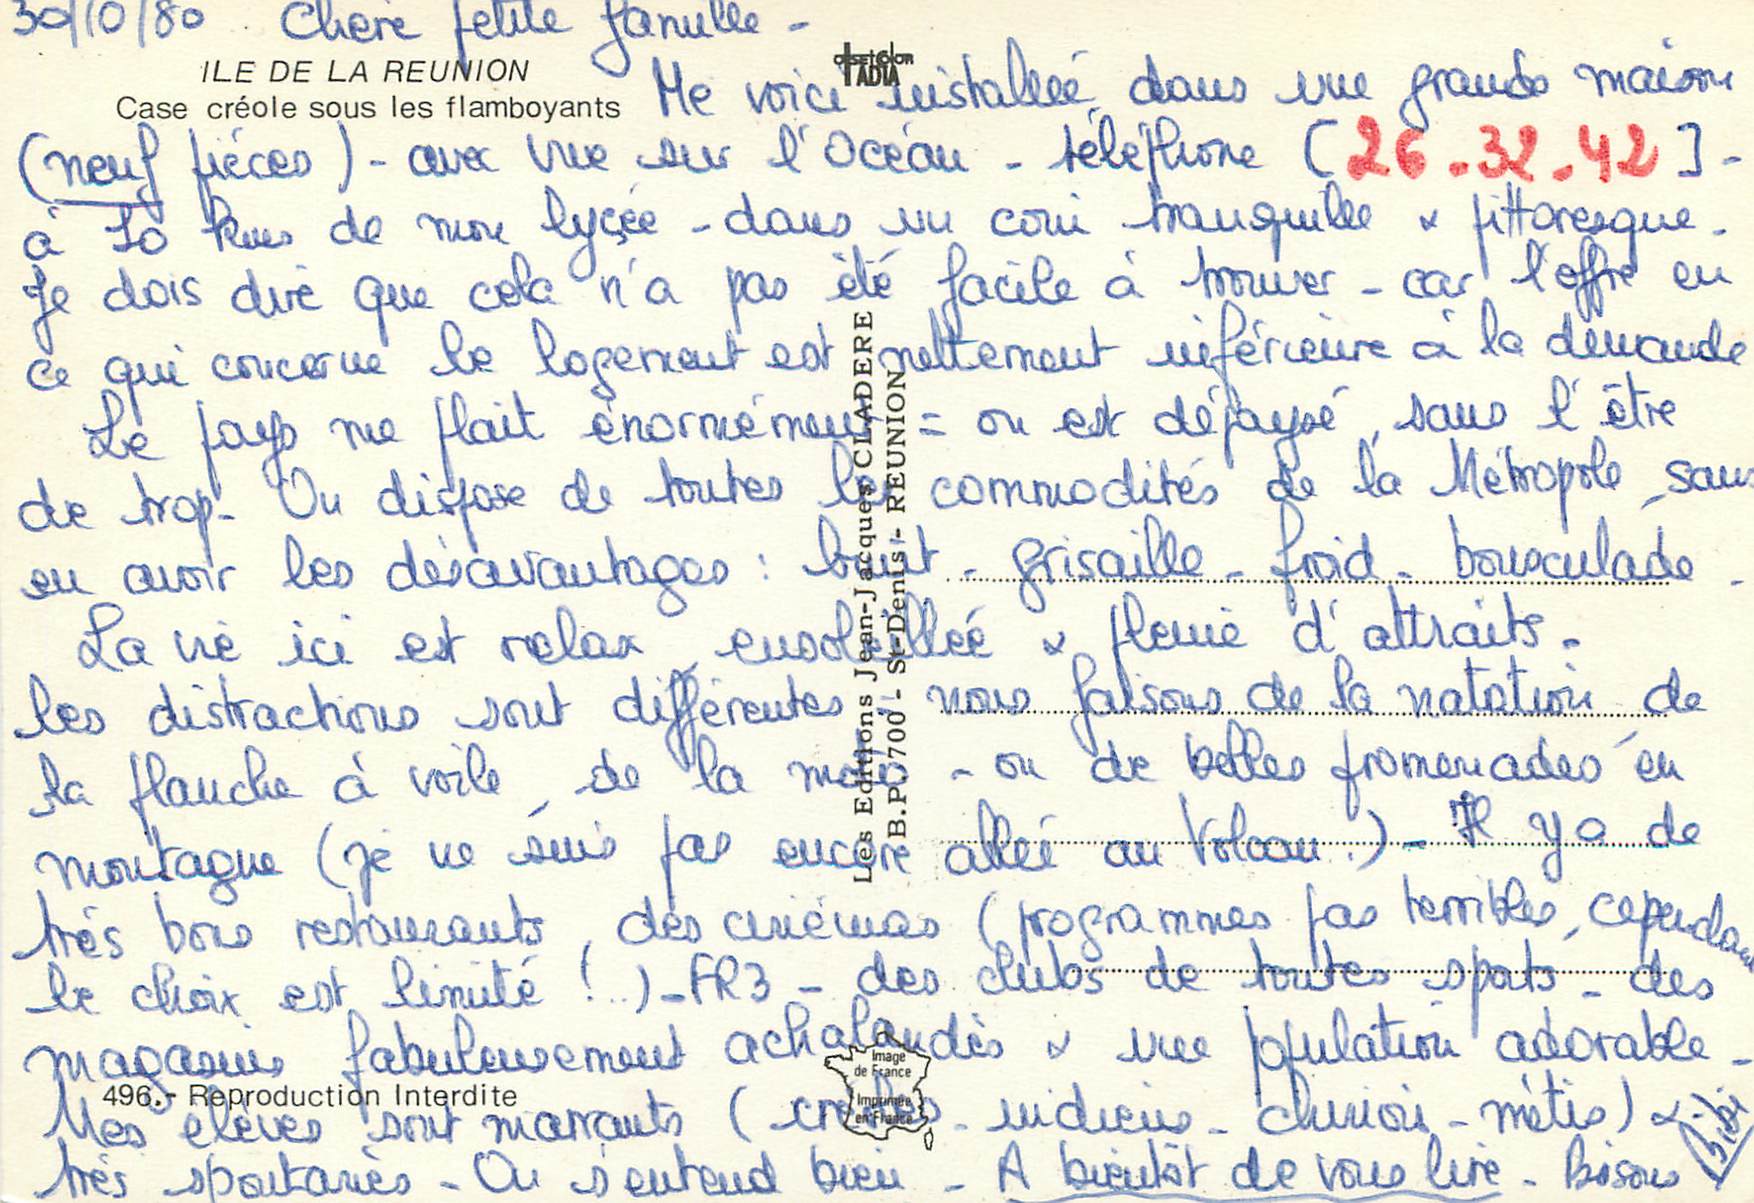 30/10/80 Chère petite famille -
ILE DE LA REUNION
Case créole sous les flamboyants
Me voici installée, dans une grande maison
(neuf pièces) - avec vue sur l'Océan - téléphone [26.32.42] -
à 10 kms de mon lycée - dans un coin tranquille & pittoresque -
Je dois dire que cela n'a pas été facile à trouver - car l'offre en
ce qui concerne le logement est nettement inférieure à la demande
Le pays me plait énormément = on est dépaysé, sans l'être
de trop - On dispose de toutes les commodités de la Métropole, sans
en avoir les désavantages : bruit - grisaille - froid - bousculade -
La vie ici est relax, ensoleillée & pleine d'attraits -
les distractions sont différentes - nous faisons de la natation de
la planche à voile, de la moto - ou de belles promenades en
montagne (je ne suis pas encore allée au Volcan.) - Il y a de
très bons restaurants, des cinémas (programmes pas terribles, cependant
le choix est limité !..) - FR3 - des clubs de toutes sports - des
magasins fabuleusement achalandés & une population adorable -
Mes élèves sont marrants (créoles - indiens - chinois - métis) &
très spontanés - On s'entend bien - A bientôt de vous lire - Bisous
Les Editions Jean-Jacques CLADERE
B.P. 700 - St-Denis - REUNION
496. - Reproduction Interdite
Image
de France
Imprimée
en France